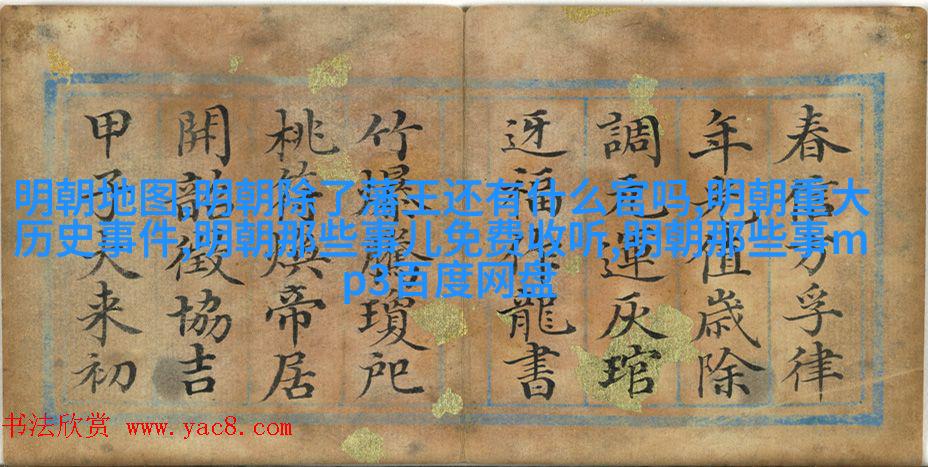 春信方孚律
年光值歲除
調元運灰琯
迓福龍書
竹爆騰瓊
桃符煥帝居
開韶徵協吉
甲子来初
明朝地图,明朝除了藩王还有什么官吗,明朝重大
历史事件,明朝那些事儿免费收听,明朝那些事m
p3百度网盘
书法欣赏 www.yac8.com